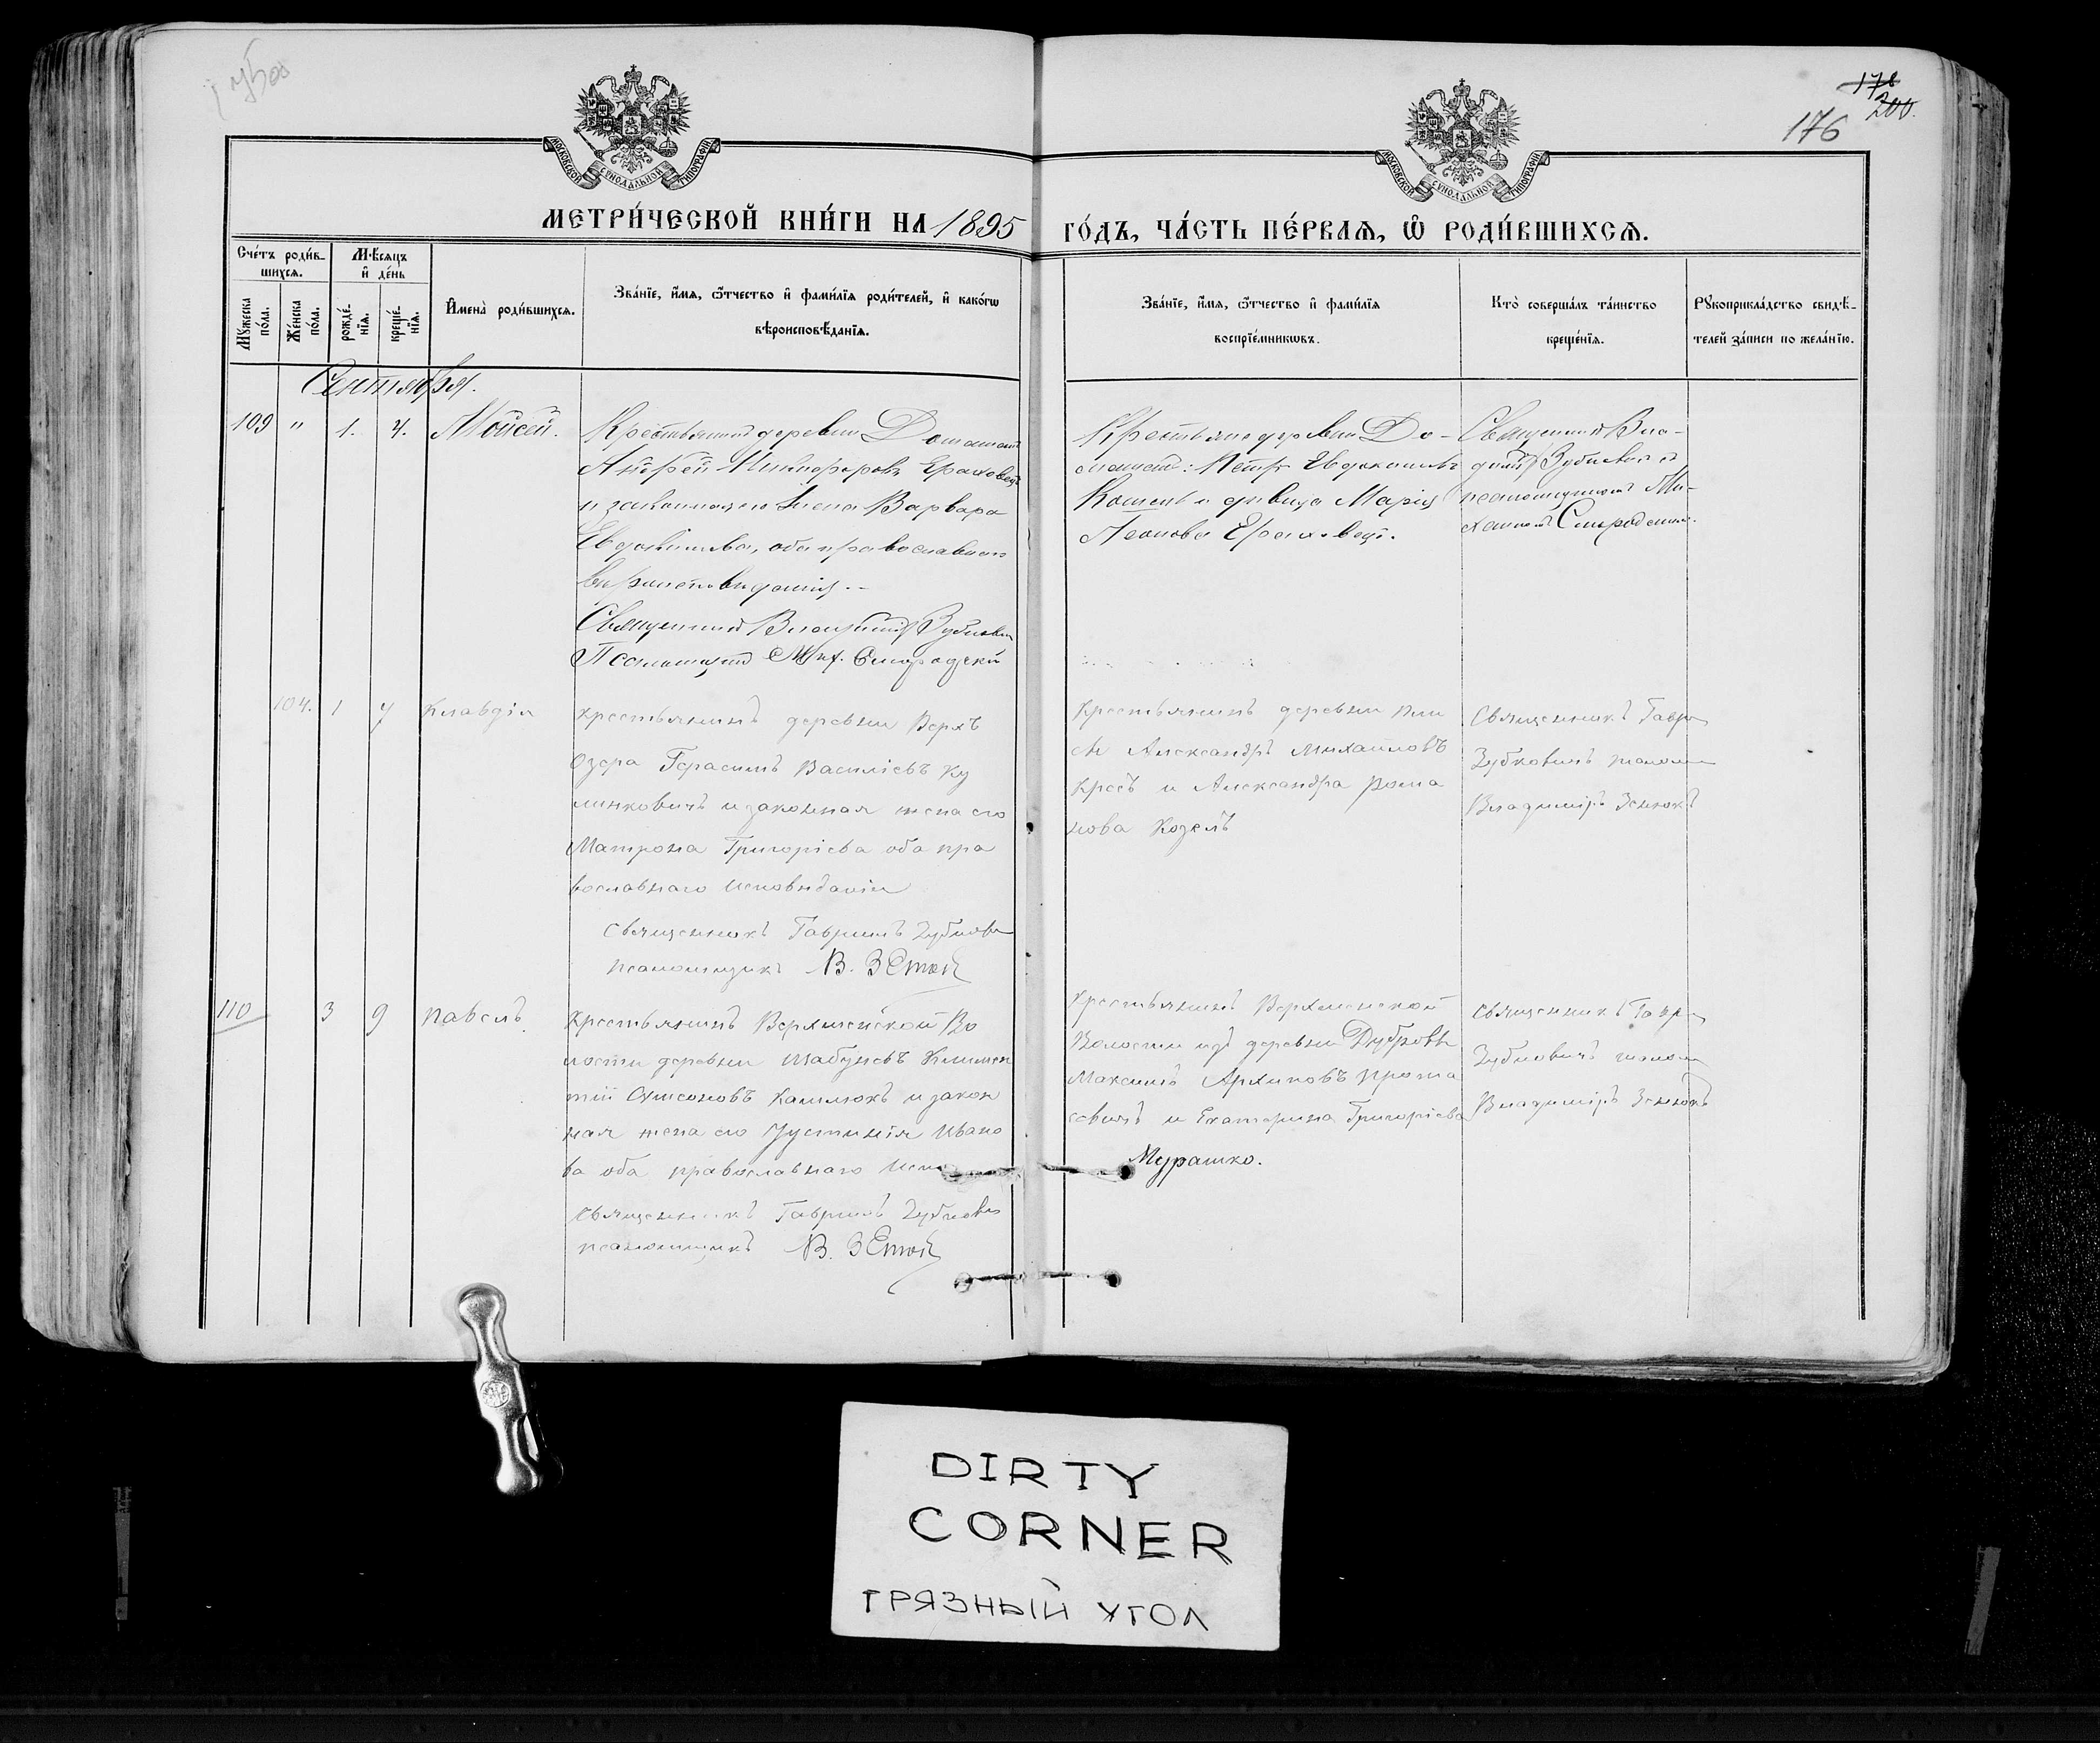 176
200.
176
МОСКОВСКОЙ СѴНОДАЛЬНОЙ ТИПОГРАФІИ
МОСКОВСКОЙ СѴНОДАЛЬНОЙ ТИПОГРАФІИ
МЕТРИ́ЧЕСКОЙ КНИ́ГИ НА 1895 ГО́ДЪ, ЧА́СТЬ ПЕ́РВАЯ, Ѽ РОДИ́ВШИХСЯ.
Сче́тъ роди́в-
шихся.
Мѣсяцъ
и де́нь
Мꙋжеска
по́ла.
Же́нска
по́ла.
рожде́-
нїя.
креще́-
нїя.
Имена̀ роди́вшихся.
Зва́нїе, и́мя, ѻ́тчество и фами́лїя роди́телей, и како́гѡ
вѣроисповѣ́данїя.
Зва́нїе, и́мя, ѻ́тчество и фами́лїя
воспрїе́мникѡвъ.
Кто̀ соверша́лъ та́инство
креще́нїя.
Рꙋкоприкла́дство свидѣ́-
телей за́писи по жела́нїю.
Сентября.
109 " 1. 4. Мойсей.
Крестьянинъ деревни
Андрей Никифоровъ Ераховецъ
и законная его жена Варвара
Евдокимова, оба православнаго
вѣроисповѣданія. -
Священникъ Владиміръ Зубковичъ
Псаломщикъ Мих. Смородскій
Крестьяне деревни До-
Петръ Евдокимовъ
и дѣвица Марія
Леонова Ераховецъ.
Священникъ Вла-
диміръ Зубковичъ съ
псаломщикомъ Ми-
хаиломъ
104. 1 7 Клавдія
Крестьянинъ деревни Верхъ
Озера Герасимъ Василіевъ Ку
линковичъ и законная жена его
Матрона Григоріева оба пра
вославнаго исповѣданія
Священникъ Гавріилъ Зубкович
псаломщикъ В. Зенюк
Крестьянинъ деревни
Александръ Михайловъ
Кресъ и Александра Рома
нова Козелъ
Священникъ Гаврі
Зубковичъ псалом
Владиміръ Зенюкъ
110 3 9 Павелъ
Крестьянинъ Верхменской Во
лости деревни Шабуневъ Климен
тій Самсоновъ Камлюкъ и закон
ная жена его Іустинія Ивано
ва оба православнаго испо
Священникъ Гавріилъ Зубкович
псаломщикъ В. Зенюк
Крестьянинъ Верхменской
Волости изъ деревни Дубровы
Максимъ Архиповъ Прота
севичъ и Екатерина Григоріева
Мурашко.
Священникъ Гаврі
Зубковичъ псалом
Владиміръ Зенюкъ
DIRTY
CORNER
ГРЯЗНЫЙ УГОЛ